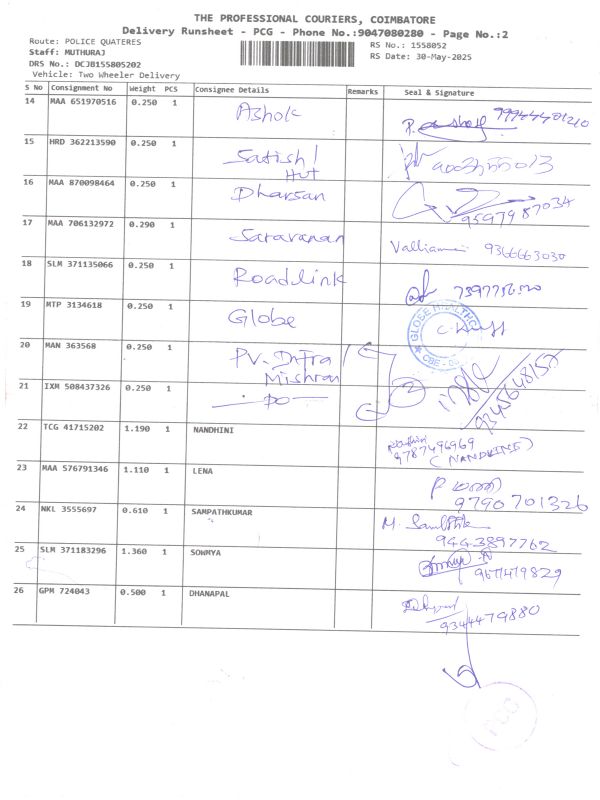 THE PROFESSIONAL COURIERS, COIMBATORE
Delivery Runsheet - PCG - Phone No.:9047080280 - Page No.:2
Route: POLICE QUATERES RS No.: 1558052
Staff: MUTHURAJ RS Date: 30-May-2025
DRS No.: DCJB155805202
Vehicle: Two Wheeler Delivery
S No Consignment No Weight PCS Consignee Details Remarks Seal & Signature
14 MAA 651970516 0.250 1 Ashok
15 HRD 362213590 0.250 1 Satish / Hut
16 MAA 870098464 0.250 1 Dharsan 9597987034
17 MAA 706132972 0.290 1 Saravanan 9366663030
18 SLM 371135066 0.250 1 Roadlink
19 MTP 3134618 0.250 1 Globe GLOBE HEALTHC CBE
20 MAN 363568 0.250 1 PV. Infra
Mishran
21 IXM 508437326 0.250 1 - Do - 9345648157
22 TCG 41715202 1.190 1 NANDHINI 9787496969
(NANDHINI)
23 MAA 576791346 1.110 1 LENA 9790701326
24 NKL 3555697 0.610 1 SAMPATHKUMAR M.
9443897762
25 SLM 371183296 1.360 1 SOWMYA
26 GPM 724043 0.500 1 DHANAPAL
9344479880
PCG